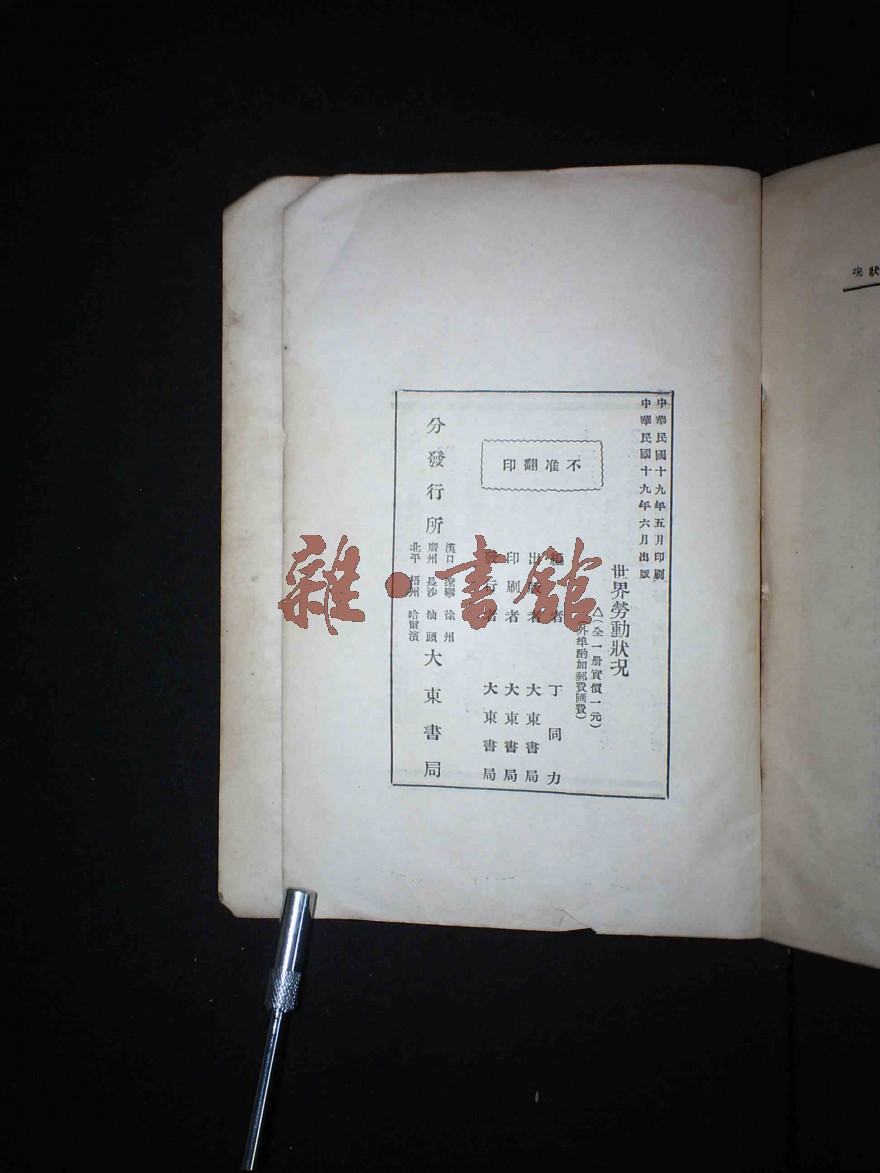 中華民國十九年五月印刷
中華民國十九年六月出版
世界勞動狀況
△(全一册實價一元)
(外埠酌加郵費匯費)
不准翻印
編者 丁同力
出版者 大東書局
印刷者 大東書局
發行者 大東書局
分發行所
漢口 遼寧 徐州
廣州 長沙 汕頭
北平 梧州 哈爾濱
大東書局
狀况
雜·書館